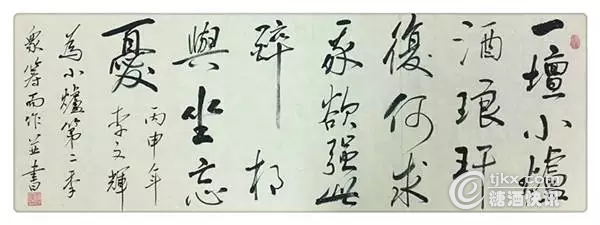 一壇小爐
酒琅玕
復何求
我欲强此
醉相
與坐忘
憂
丙申年
李文輝
為小爐第二季
眾籌而作並書
tjkx.com
糖酒快讯